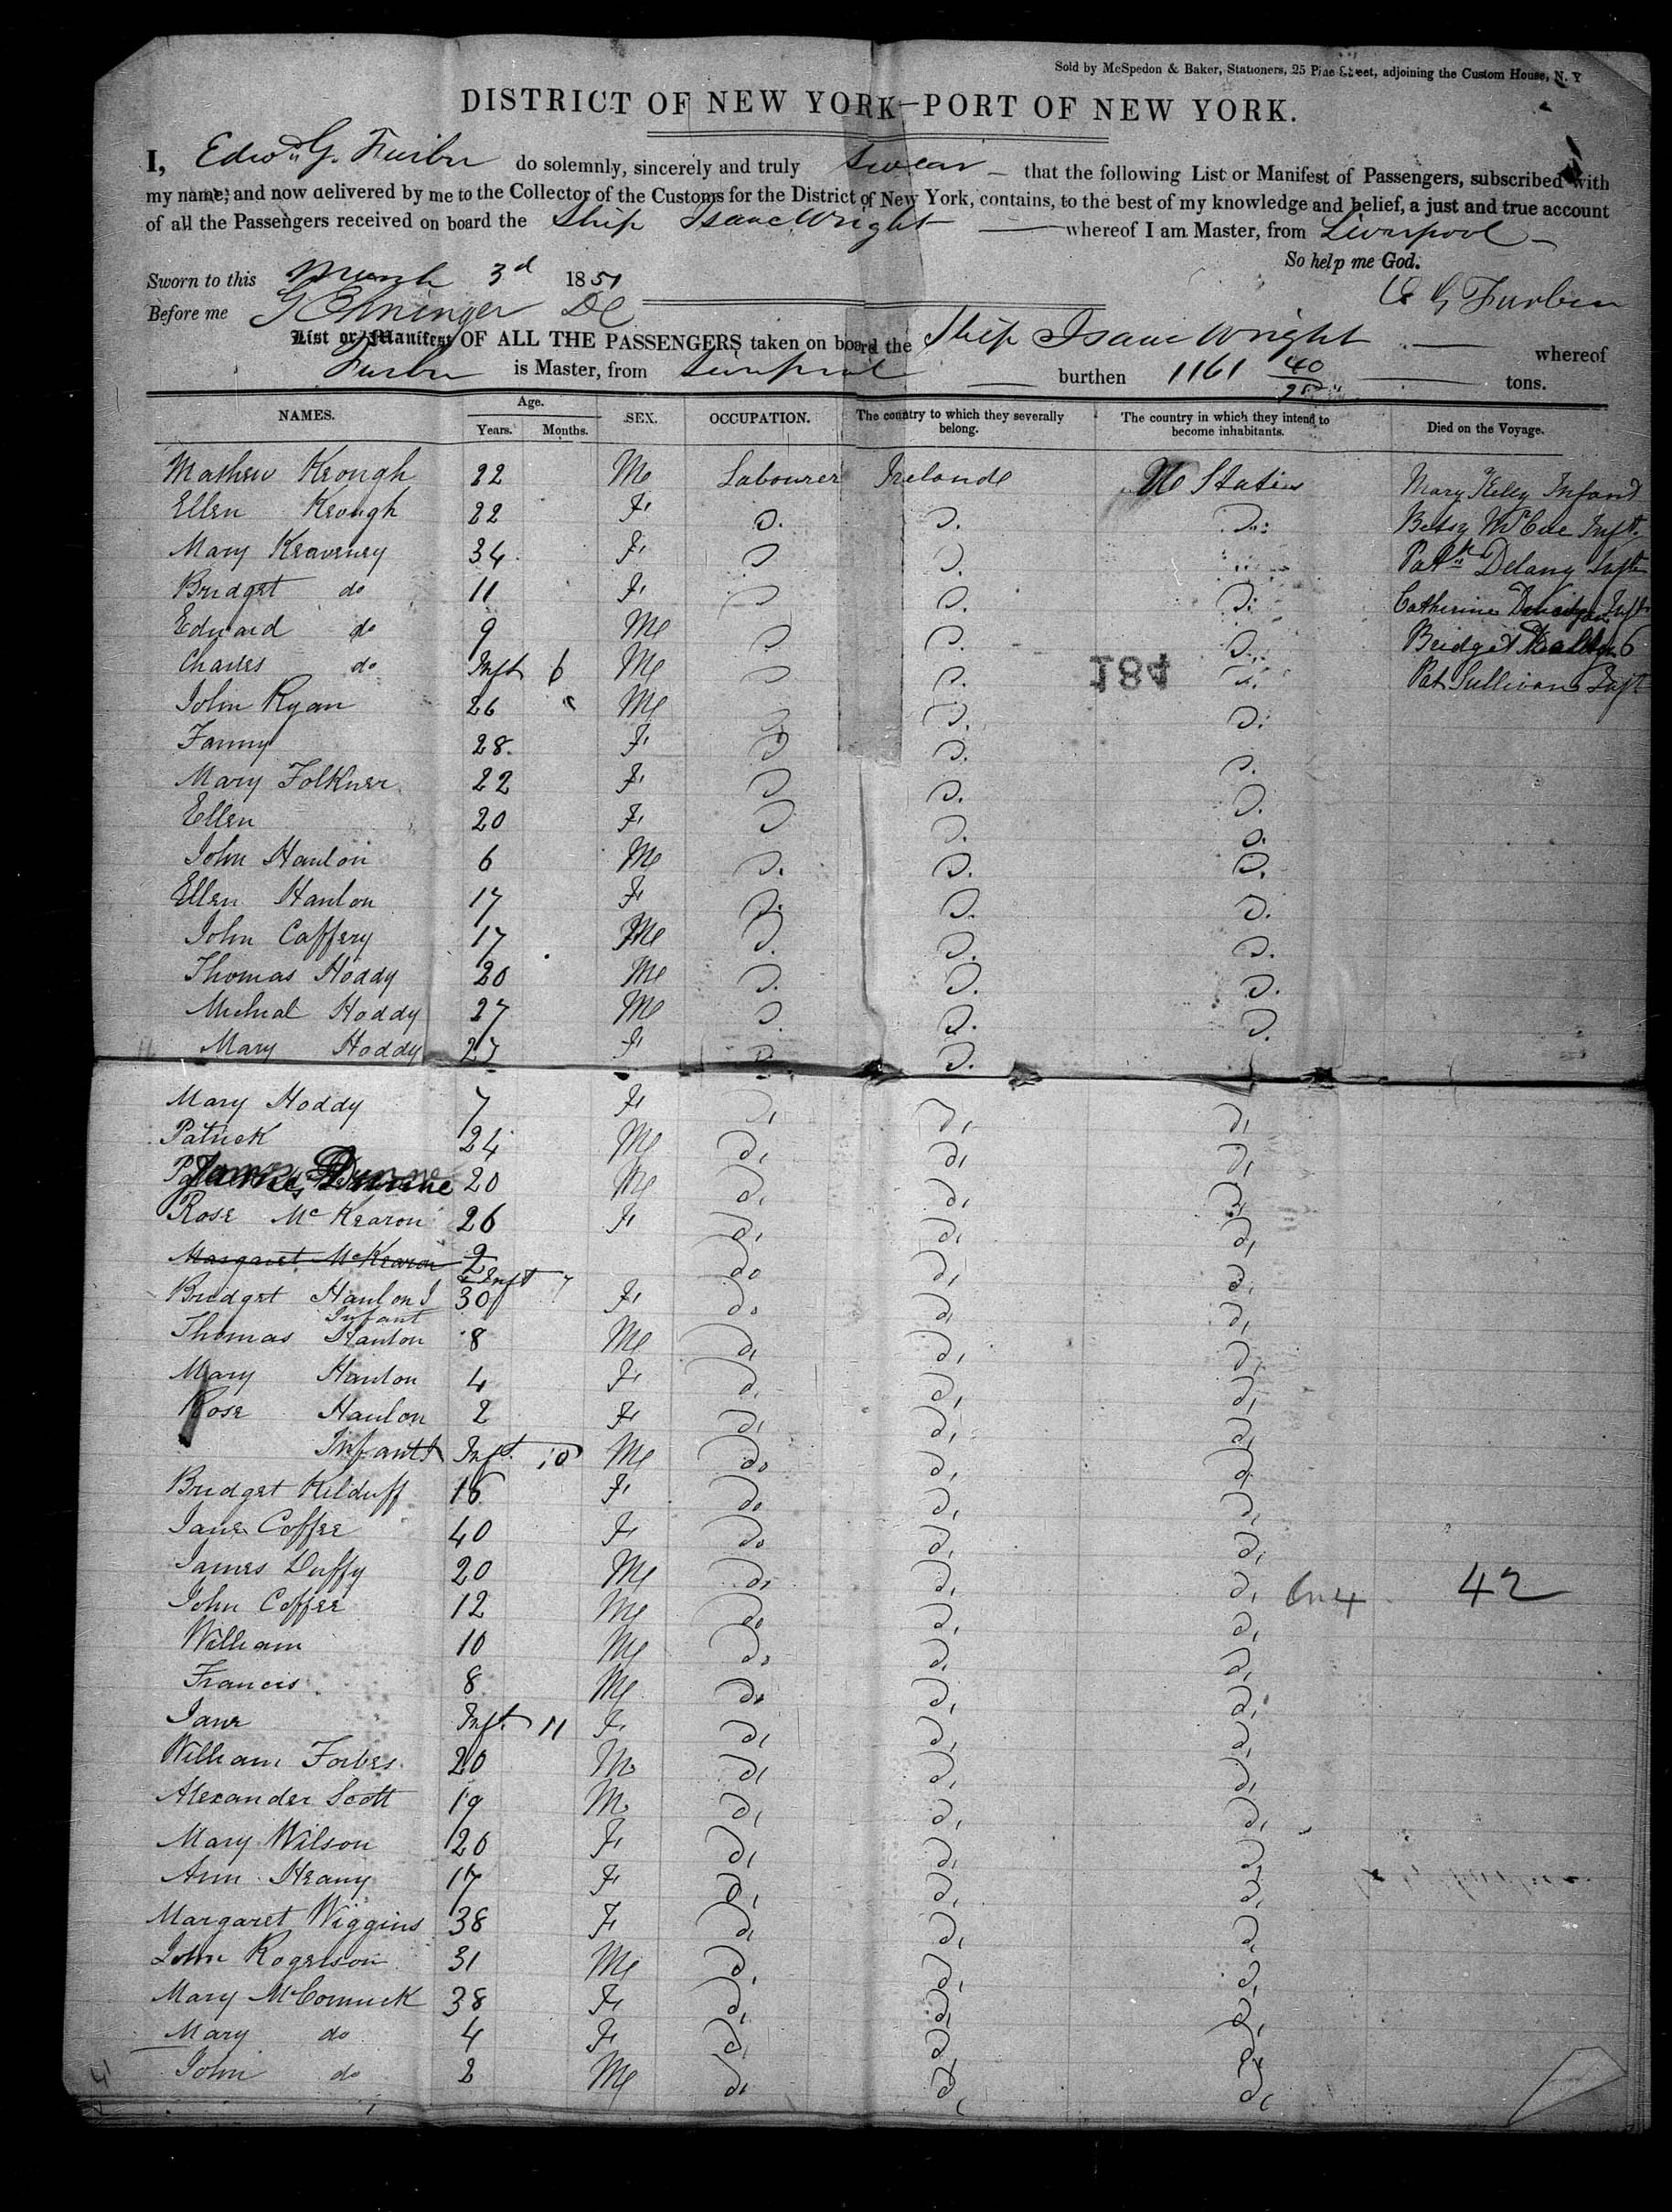 Sold by McSpedon & Baker, Stationers, 25 Pine Street, adjoining the Custom House, N. Y
DISTRICT OF NEW YORK—PORT OF NEW YORK.
I, Edwd G. Furber do solemnly, sincerely and truly swear — that the following List or Manifest of Passengers, subscribed with
my name, and now delivered by me to the Collector of the Customs for the District of New York, contains, to the best of my knowledge and belief, a just and true account
of all the Passengers received on board the Ship Isaac Wright whereof I am Master, from Liverpool
So help me God.
Sworn to this March 3d 1851
E G Furber
Before me
List or Manifest OF ALL THE PASSENGERS taken on board the Ship Isaac Wright whereof
Furber is Master, from Liverpool burthen 1161 40 tons.
NAMES. Age. Years. Months. SEX. OCCUPATION. The country to which they severally belong. The country in which they intend to become inhabitants. Died on the Voyage.
Mathew Keough 22 Me Labourer Irelande U States Mary Kelly Infant
Ellen Keough 22 F D. D. D. Betsy McCue Inft.
Mary Keaveney 34 F D D. Patk Delany Inft
Bridget do 11 F D D. D. Catherine Inft
Edward do 9 Me D D. D. Bridget 6
Charles do Inft 6 Me D D. D. Pat Sullivan Inft
184
John Ryan 26 Me D D. D.
Fanny 28. F D D. D.
Mary Folkner 22 F D D. D.
Ellen 20 F D D. D.
John Hanlon 6 Me D. D. D.
Ellen Hanlon 17 F D. D. D.
John Caffery 17 Me D. D. D.
Thomas Hoddy 20 Me D. D. D.
Micheal Hoddy 27 Me D. D. D.
Mary Hoddy 27 F D. D.
Mary Hoddy 7 F D, D, D,
Patrick 24 Me do do do
James Dunne 20 Me do do do
Rose McKearon 26 F do do do
Margaret McKearon 2 do do do
Inft 7
Bridget Hanlon 30 F do do do
Infant
Thomas Hanlon 8 Me do do do
Mary Hanlon 4 F do do do
Rose Hanlon 2 F do do do
Infant Inft. 10 Me do do do
Bridget Kilduff 16 F do do do
Jane Coffee 40 F do do do
James Duffy 20 Me do do do 42
John Coffee 12 Me do do do
William 10 Me do do do
Francis 8 Me do do do
Jane Inft. 11 F do do do
William Forbes 20 M do do do
Alexander Scott 19 M do do do
Mary Wilson 20 F do do do
Ann Heany 17 F do do do
Margaret Wiggins 38 F do do do
John Rogerson 31 Me do do do
Mary McCormick 38 F do do do
Mary do 4 F do do do
John do 2 Me do do do